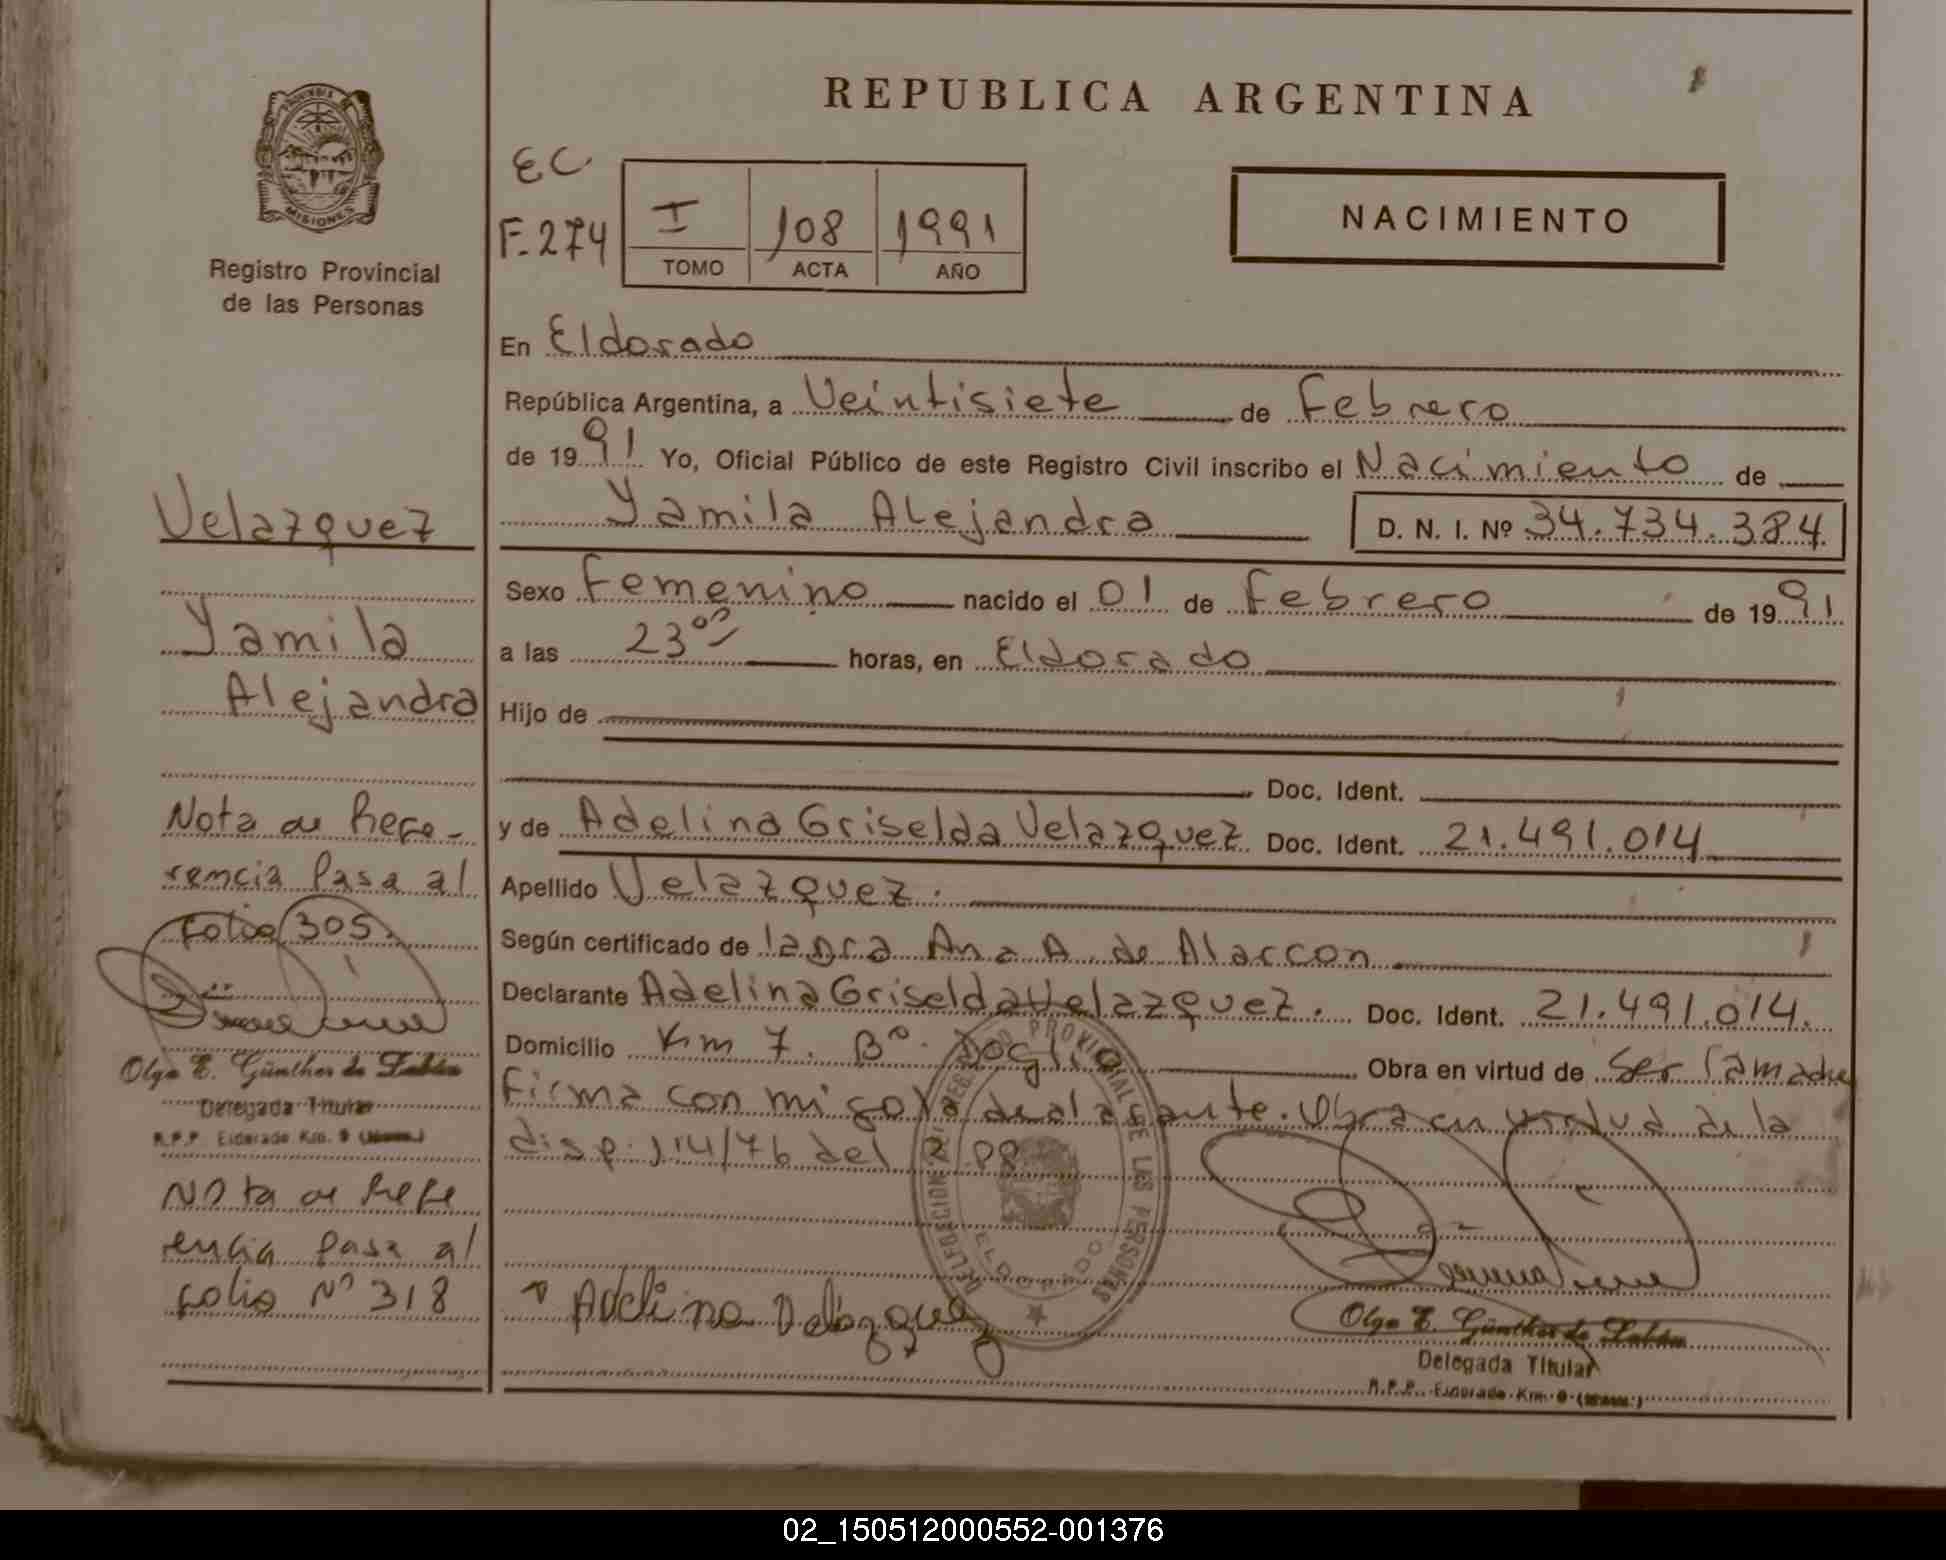 REPUBLICA ARGENTINA
PROVINCIA DE
MISIONES
Registro Provincial
de las Personas
EC
F. 274
I 108 1991
TOMO ACTA AÑO
NACIMIENTO
En Eldorado
República Argentina, a Veintisiete de Febrero
de 1991 Yo, Oficial Público de este Registro Civil inscribo el Nacimiento de
Yamila Alejandra D. N. I. Nº 34.734.384
Sexo Femenino nacido el 01 de Febrero de 1991
a las 23 horas, en Eldorado
Hijo de
Doc. Ident.
y de Adelina Griselda Velazquez Doc. Ident. 21.491.014
Apellido Velazquez.
Según certificado de Ana A. de Alarcon
Declarante Adelina Griselda Velazquez. Doc. Ident. 21.491.014.
Domicilio Km 7. Bº. Obra en virtud de Ser la madre
Firma con mi sola Obra en virtud de la
disp. 114/76 del
Adelina Velázquez
DELEGACION REG. PROVINCIAL DE LAS PERSONAS
ELDORADO
Olga E. Günther de
Delegada Titular
R.P.P. Eldorado Km. 9
Velazquez
Yamila
Alejandra
Nota de Refe-
rencia Pasa al
folio 305.
Olga E. Günther de
Delegada Titular
R.P.P. Eldorado Km. 9
Nota de Refe
rencia pasa al
folio Nº 318
02_150512000552-001376